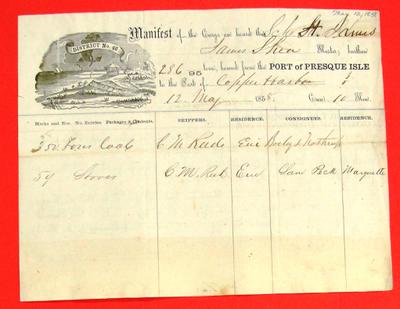 May 12, 1858
Manifest of the Cargo on board the Schr St. James
DISTRICT No. 26
James Shea Master, burthen
286 95 tons, bound from the PORT of PRESQUE ISLE
to the Port of Copper Harbor
12 May 1858. Crew: 10 Men.
Marks and Nos. No. Entries. Packages & Contents. SHIPPERS. RESIDENCE. CONSIGNEES. RESIDENCE.
350 Tons Coal C M Reed Erie
59 Stoves C. M. Reed Erie Sam Peck Marquette